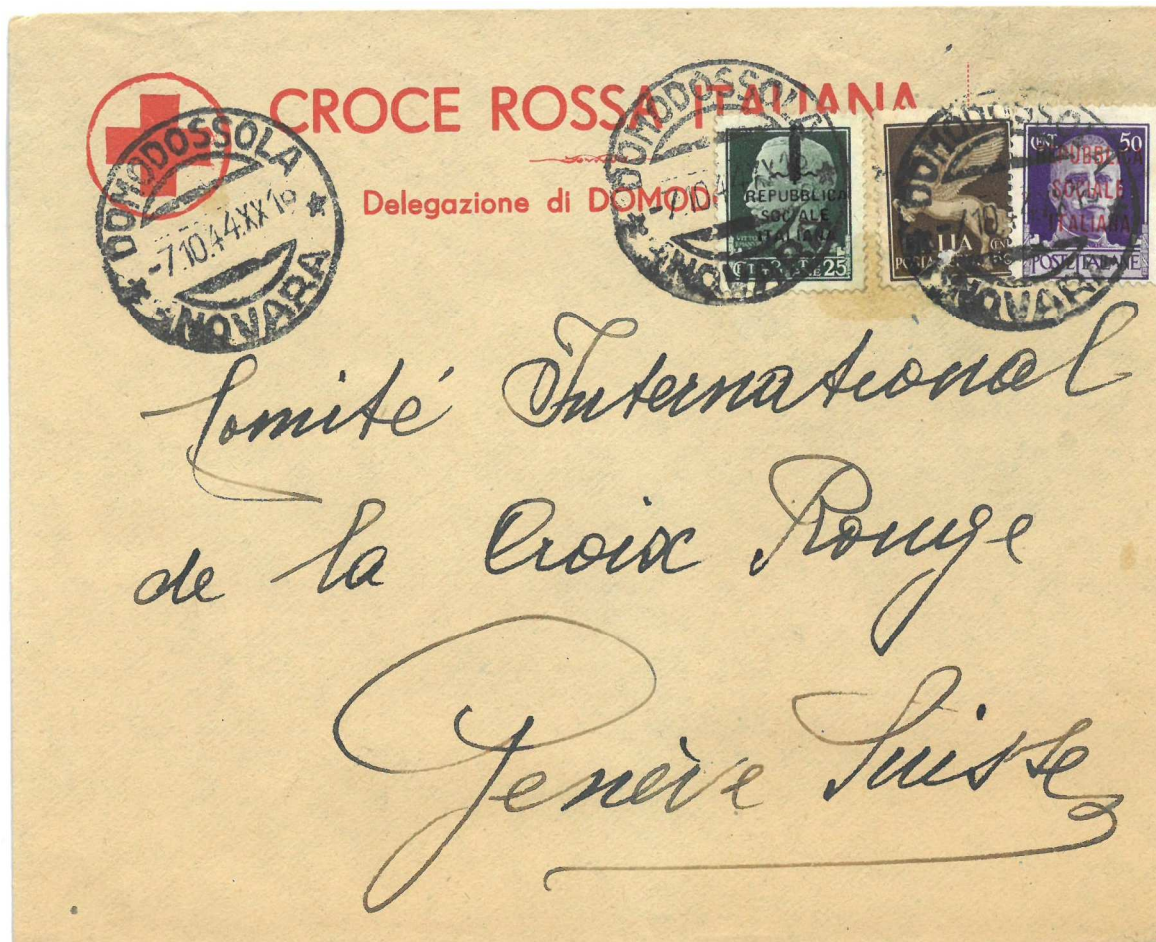 CROCE ROSSA ITALIANA
Delegazione di DOMOD
DOMODOSSOLA
-7.10.44.XX
NOVARA
DOMODOSSOLA
-7.10.4
NOVARA
REPUBBLICA
SOCIALE
ITALIANA
25
DOMODOSSOLA
NOVARA
POSTA
CENT. 50
REPUBBLICA
SOCIALE
ITALIANA
POSTE ITALIANE
Comité International
de la Croix Rouge
Genève Suisse